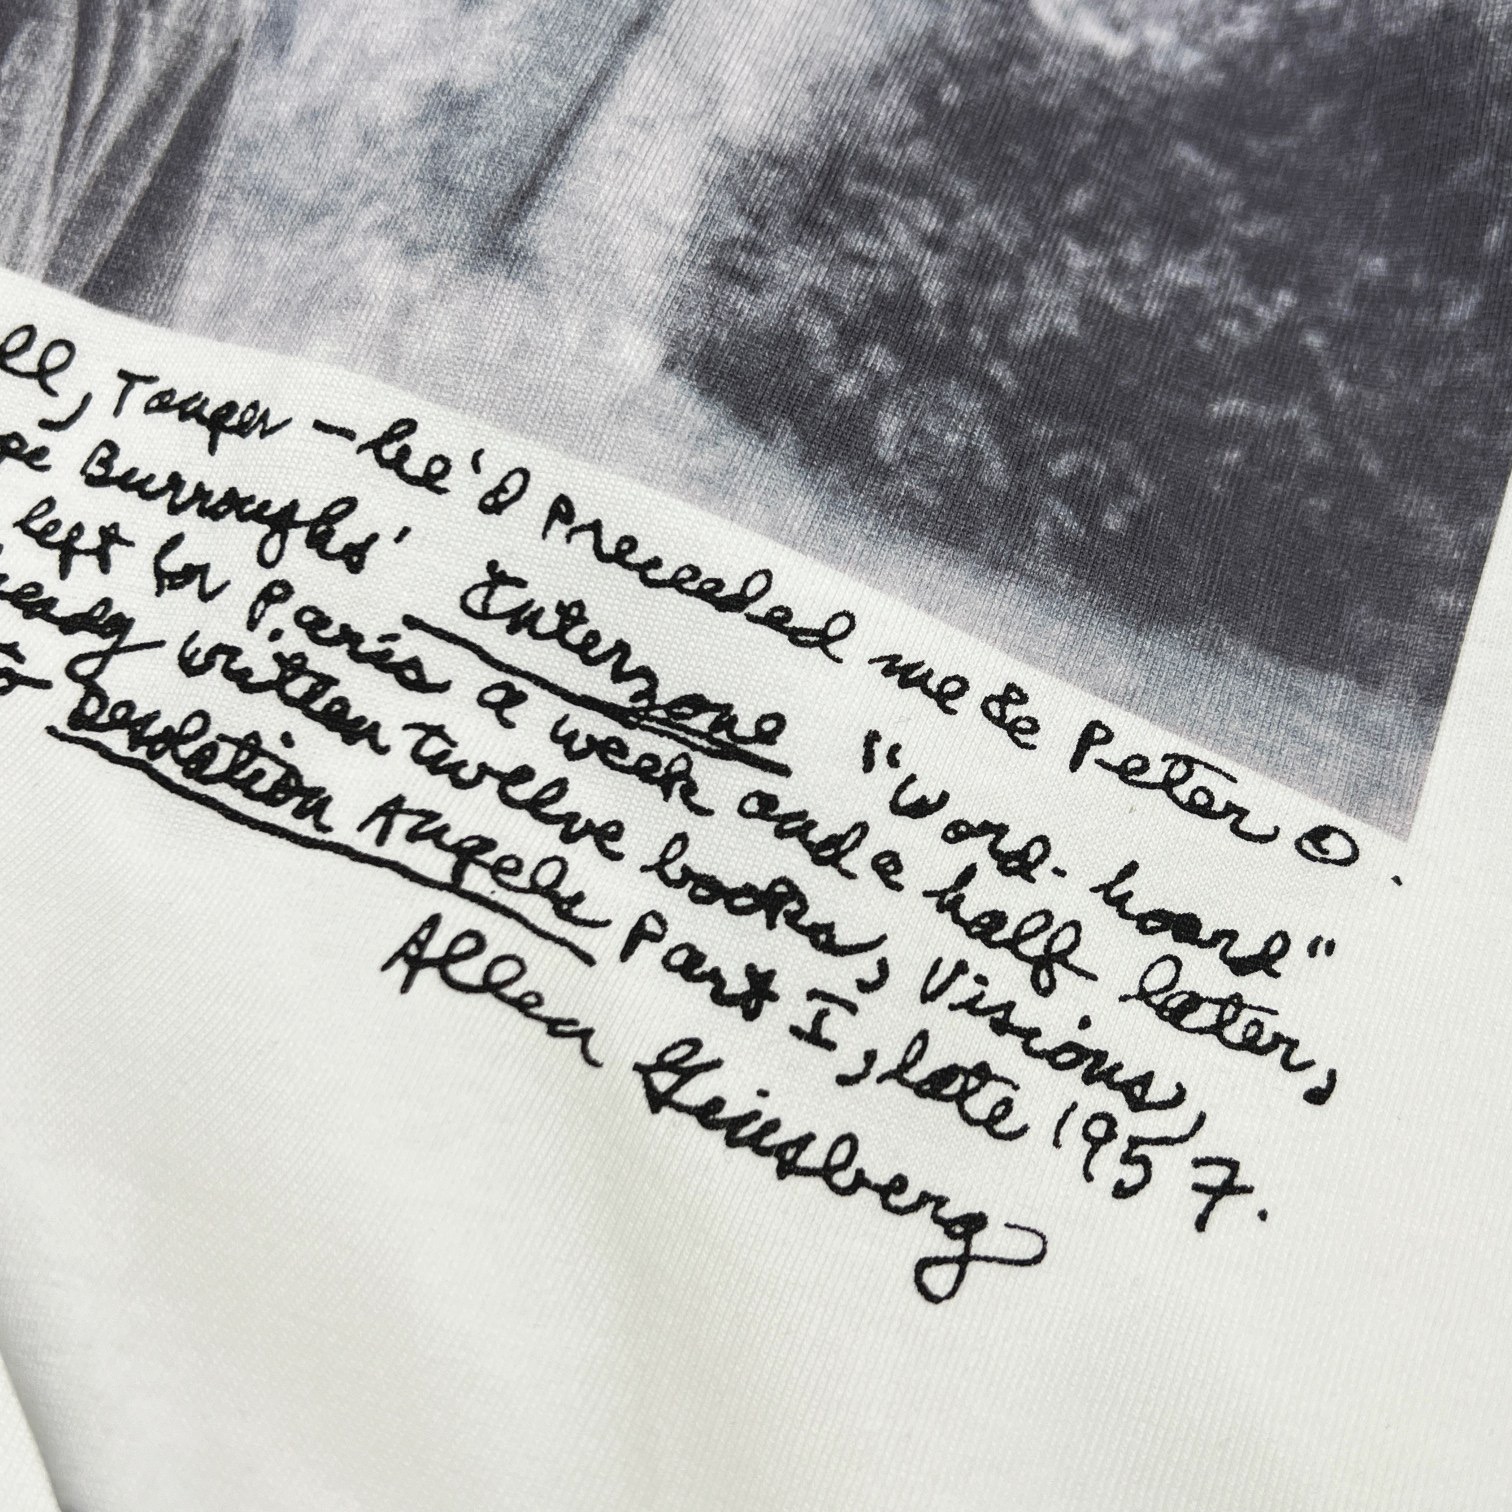 ll, Tanger — hee'd preceeded me & Peter O.
pe Burroughs' Interzone "word-hoard"
left for Paris a week and a half later,
ready written twelve books, Visions,
to Desolation Angels Part I, late 1957.
Allen Ginsberg